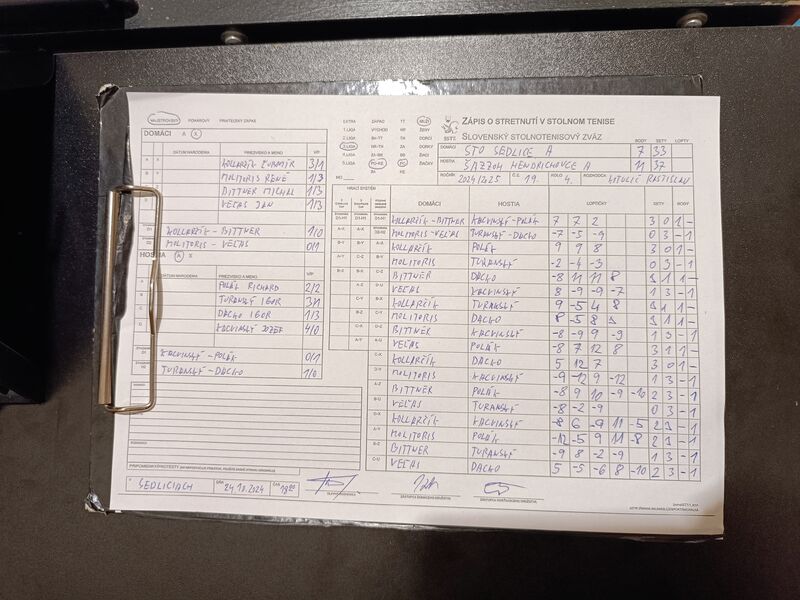 MAJSTROVSKÝ POHÁROVÝ PRIATEĽSKÝ ZÁPAS
DOMÁCI A X
DÁTUM NARODENIA PRIEZVISKO A MENO V/P
KOLLARČÍK ĽUBOMÍR 3/1
MOLITORIS RENÉ 1/3
BITTNER MICHAL 1/3
VEĽAS JÁN 1/3
D1 KOLLARČÍK - BITTNER 1/0
D2 MOLITORIS - VEĽAS 0/1
HOSTIA A X
DÁTUM NARODENIA PRIEZVISKO A MENO V/P
POLÁK RICHARD 2/2
TURANSKÝ IGOR 3/1
DACKO IGOR 1/3
KACVINSKÝ JOZEF 4/0
D1 KACVINSKÝ - POLÁK 0/1
D2 TURANSKÝ - DACKO 1/0
PRIPOMIENKY/PROTESTY
SEDLICIACH DŇA 24.10.2024 ČAS
EXTRA ZÁPAD TT MUŽI
1.LIGA VÝCHOD NR ŽENY
2.LIGA BA-TT TN DORCI
3.LIGA ZA DORKY
4.LIGA ZA-BB BB ŽIACI
5.LIGA PO-KE PO ŽIAČKY
ZÁPIS O STRETNUTÍ V STOLNOM TENISE
SSTZ SLOVENSKÝ STOLNOTENISOVÝ ZVÄZ
BODY SETY LOPTY
DOMÁCI STO SEDLICE A 7 33
HOSTIA ŠAZZOH HENDRICHOVCE A 11 37
ROČNÍK 2024/2025 Č.Z. 19. KOLO 4. ROZHODCA LITOLIČ RASTISLAV
HRACÍ SYSTÉM DOMÁCI HOSTIA LOPTIČKY SETY BODY
KOLLARČÍK - BITTNER KACVINSKÝ - POLÁK 7 7 2 3 0 1 -
MOLITORIS - VEĽAS TURANSKÝ - DACKO -7 -5 -9 0 3 - 1
KOLLARČÍK POLÁK 9 9 8 3 0 1 -
MOLITORIS TURANSKÝ -2 -4 -3 0 3 - 1
BITTNER DACKO -8 11 11 8 3 1 1 -
VEĽAS KACVINSKÝ 8 -9 -9 -7 1 3 - 1
KOLLARČÍK TURANSKÝ 9 -5 4 8 3 1 1 -
MOLITORIS DACKO 8 -5 8 3 1 1 -
BITTNER KACVINSKÝ -8 -9 9 -9 1 3 - 1
VEĽAS POLÁK -8 7 12 8 3 1 1 -
KOLLARČÍK DACKO 5 12 7 3 0 1 -
MOLITORIS KACVINSKÝ -9 -12 9 -12 1 3 - 1
BITTNER POLÁK -8 9 10 -9 -10 2 3 - 1
VEĽAS TURANSKÝ -8 -2 -9 0 3 - 1
KOLLARČÍK KACVINSKÝ -8 6 -9 11 -5 2 3 - 1
MOLITORIS POLÁK -12 -5 9 11 -8 2 3 - 1
BITTNER TURANSKÝ -9 8 -2 -9 1 3 - 1
VEĽAS DACKO 5 -5 -6 8 -10 2 3 - 1